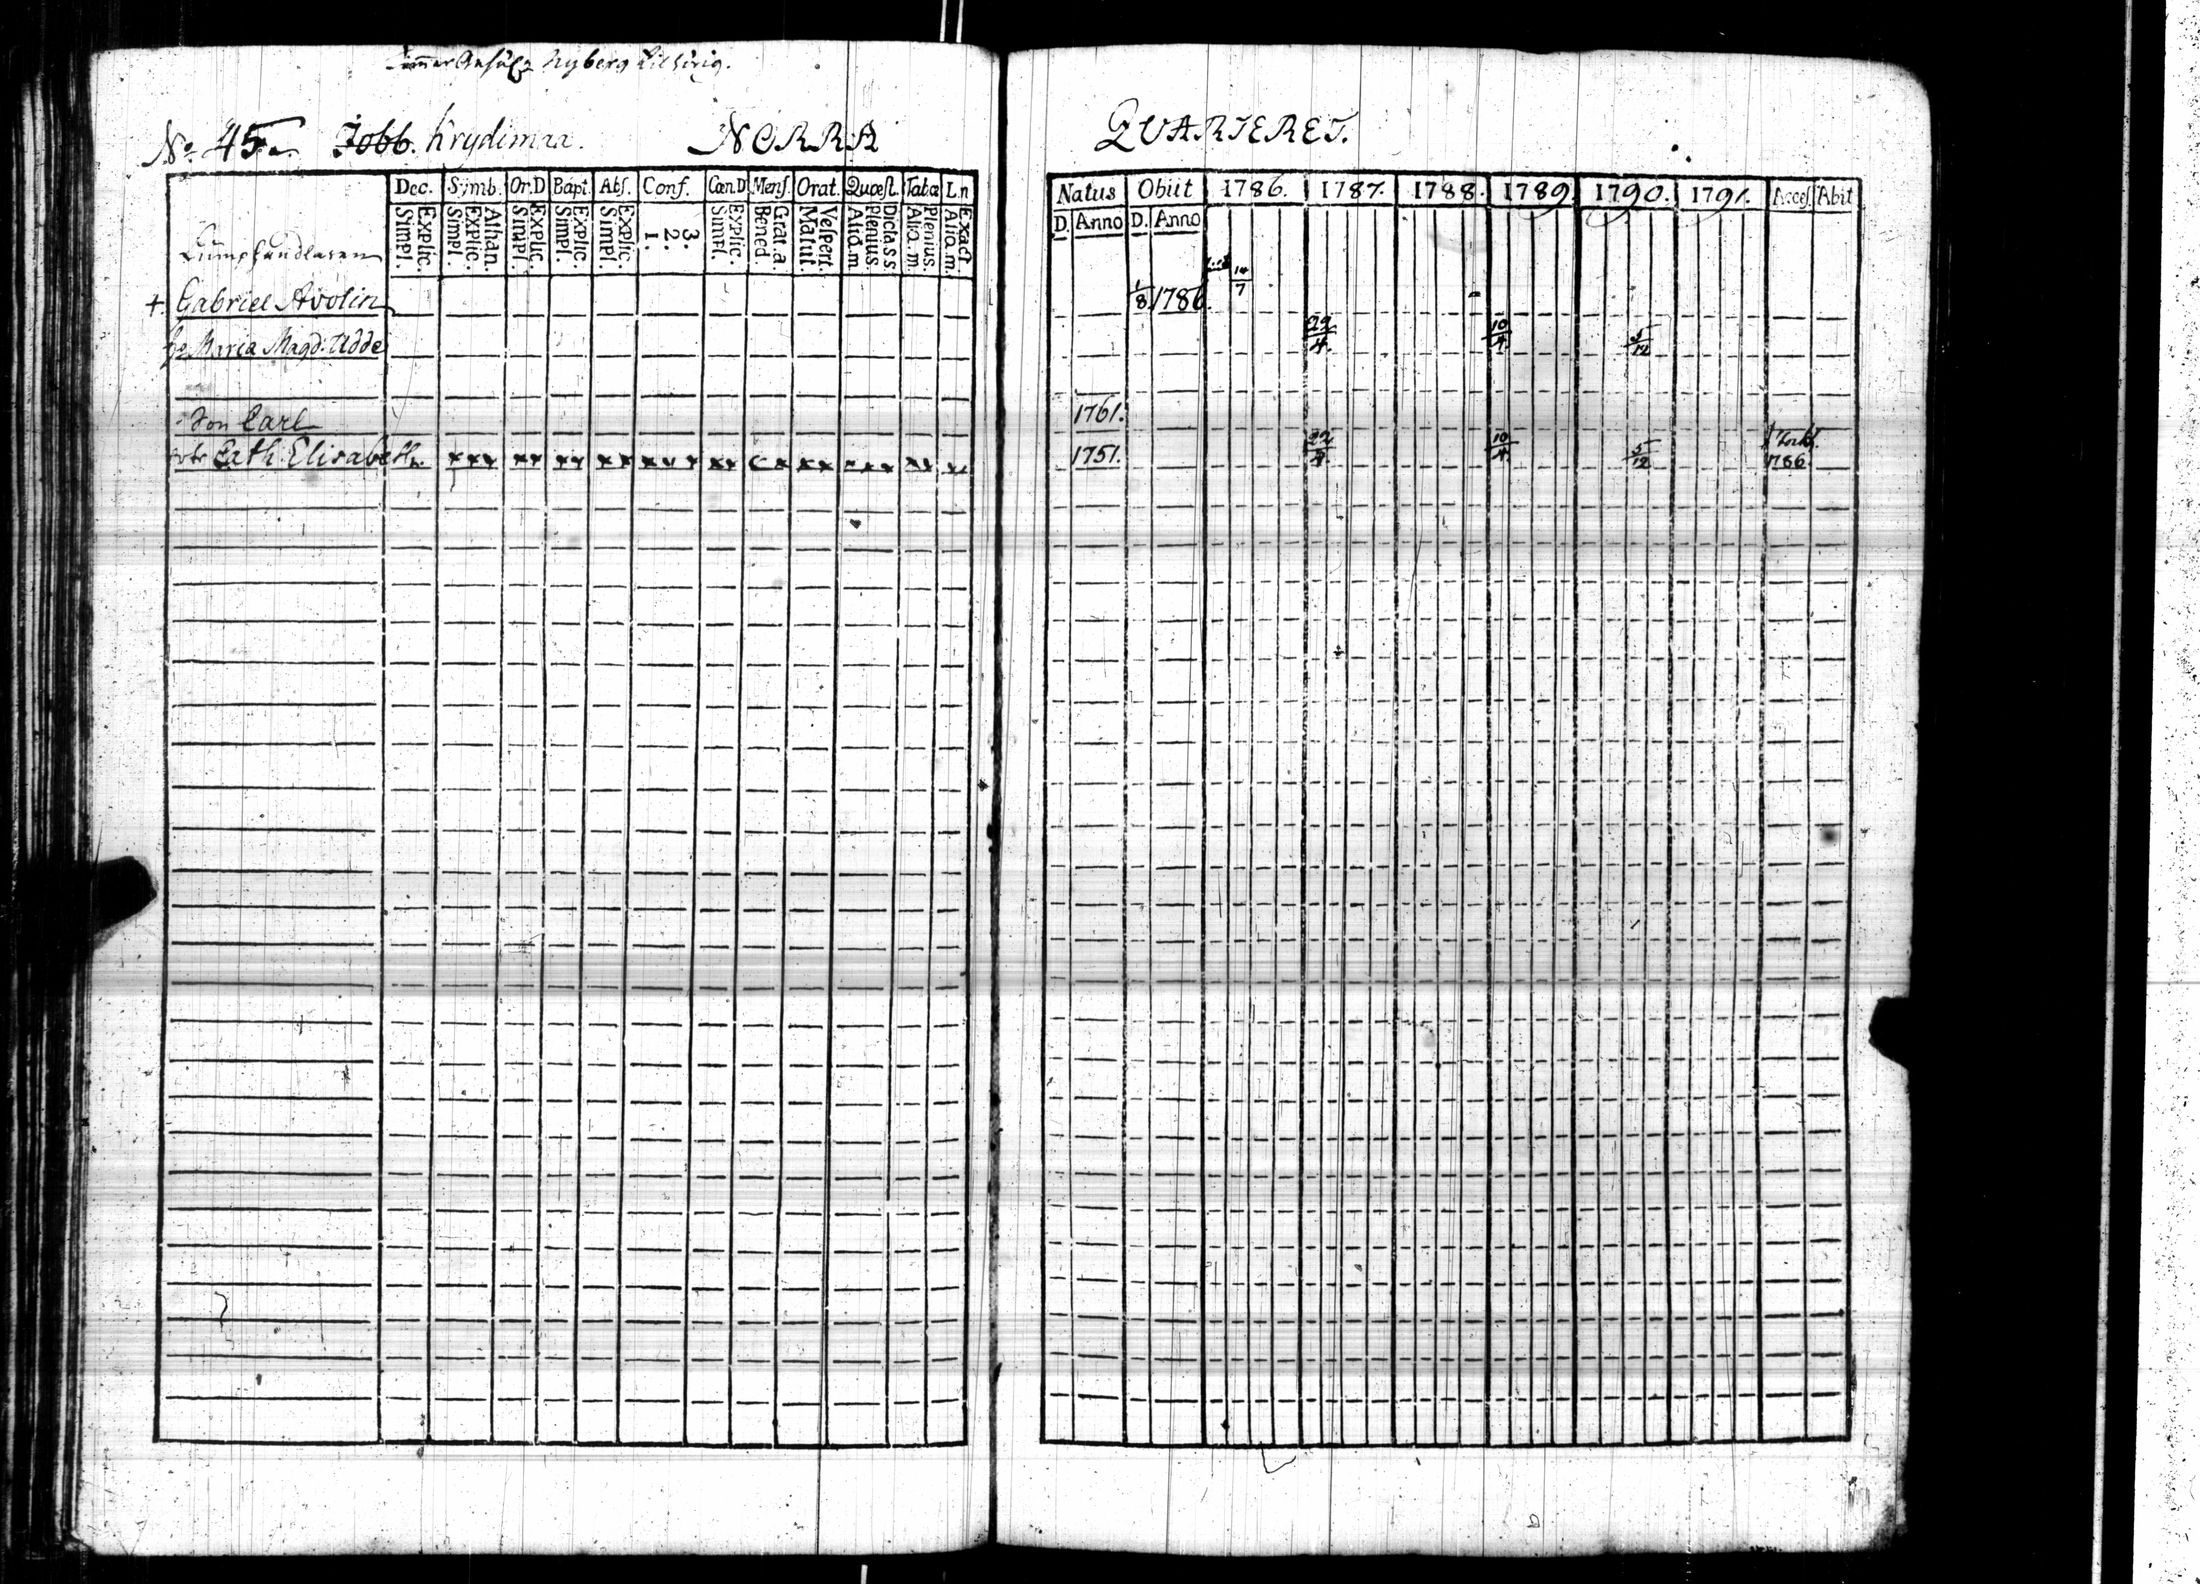 Nyberg
No. 45. Jobb. Krydimaa. NORRA
Dec. Symb. Or.D Bapt. Abs. Conf. Cœn.D Mens. Orat. Quœst. Tabœ L.n
Simpl. Explic. Simpl. Explic. Athan. Simpl. Explic. Simpl. Explic. Simpl. Explic. 1. 2. 3. Simpl. Explic. Bened. Grat.a. Matut. Vespert. Aliq.m Plenius. Dicta.ss Aliq.m Plenius. Aliq.m. Exact
Gabriel Avolin
Maria Magd: Udde
Son Carl
Cath. Elisabeth.
QUARTERET.
Natus Obiit 1786. 1787. 1788. 1789. 1790. 1791. Acces. Abit
D. Anno D. Anno
1/8 1786. 14/7
22/4. 10/4. 5/12
1761.
1751. 22/4 10/4. 5/12 1786.